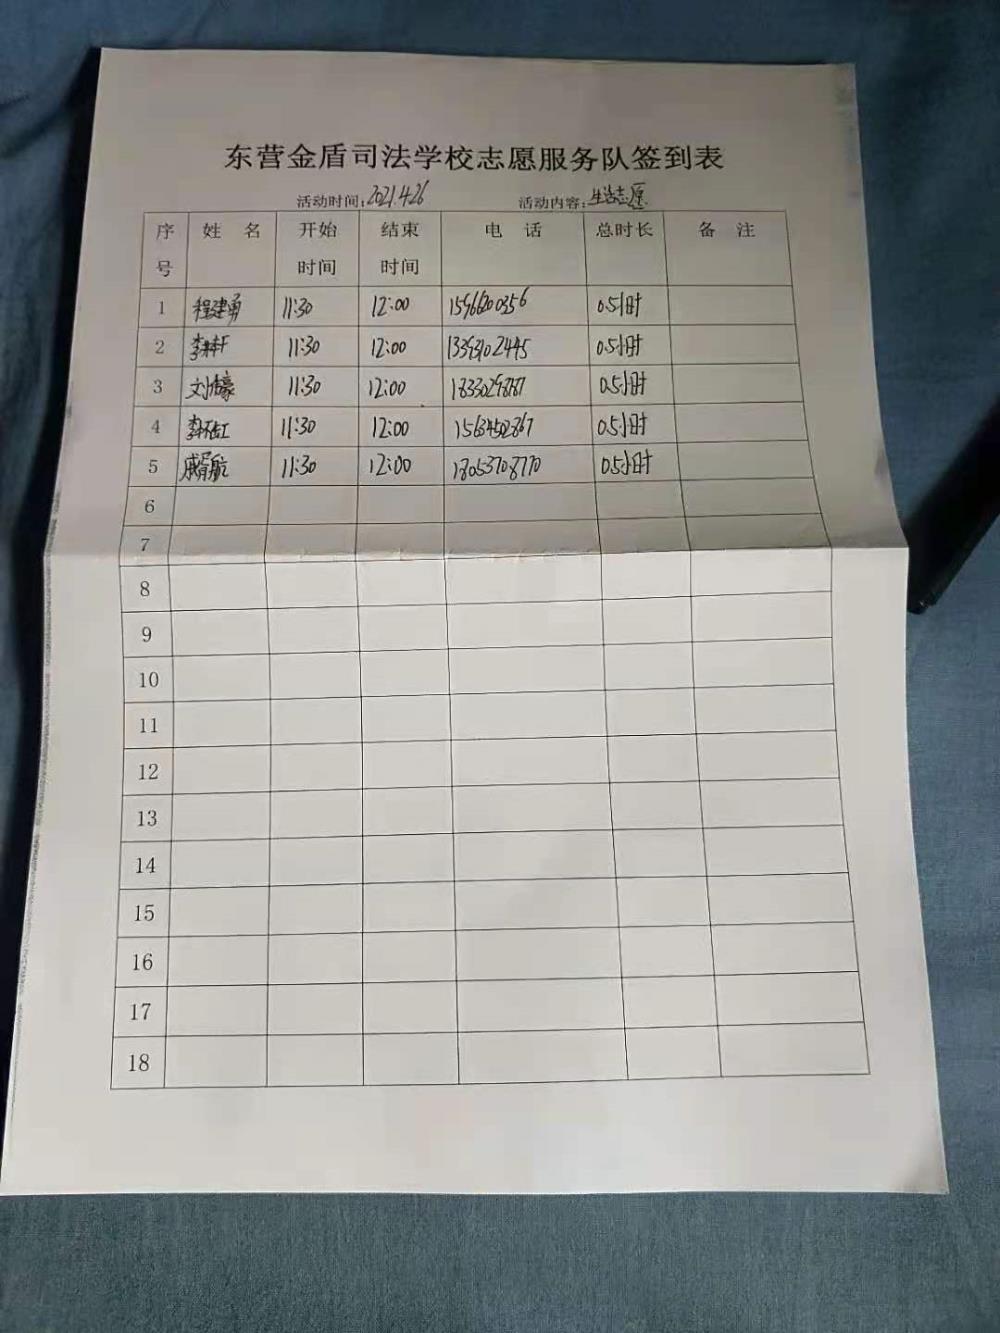 东营金盾司法学校志愿服务队签到表
活动时间：2021.4.26 活动内容：生活志愿
序号 姓 名 开始时间 结束时间 电 话 总时长 备 注
1 程建勇 11:30 12:00 0.5小时
2 11:30 12:00 13393102445 0.5小时
3 11:30 12:00 0.5小时
4 11:30 12:00 15634502867 0.5小时
5 11:30 12:00 18053708770 0.5小时
6
7
8
9
10
11
12
13
14
15
16
17
18